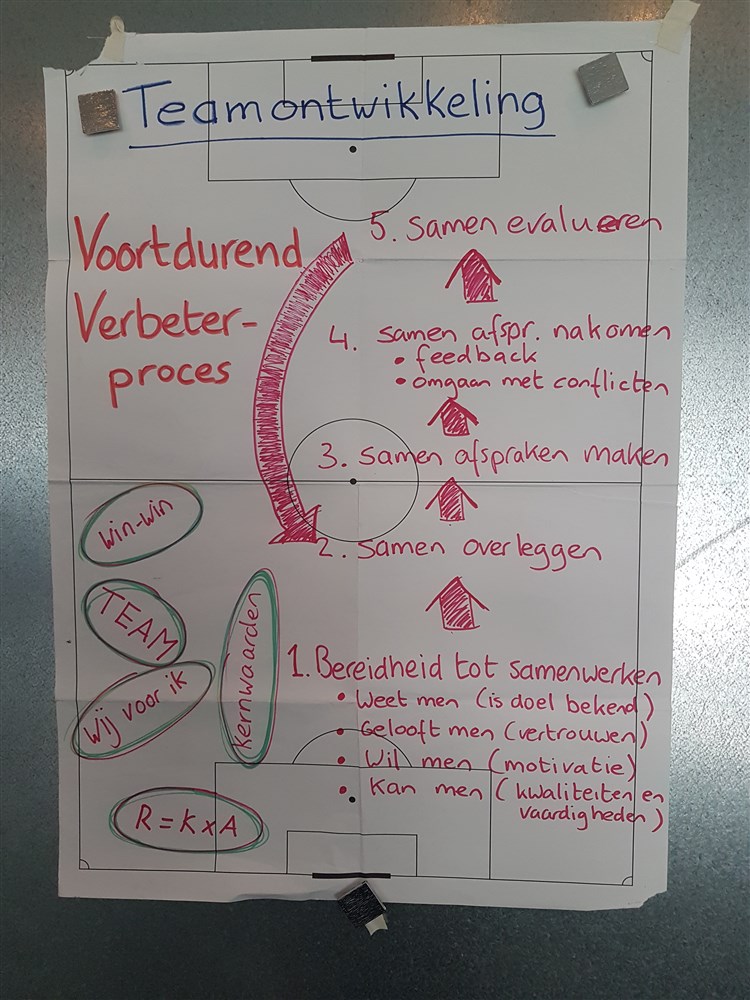 Teamontwikkeling
Voortdurend
Verbeter-
proces
5. Samen evalueren
4. Samen afspr. nakomen
• feedback
• omgaan met conflicten
3. Samen afspraken maken
2. Samen overleggen
1. Bereidheid tot samenwerken
• Weet men (is doel bekend)
• Gelooft men (vertrouwen)
• Wil men (motivatie)
• Kan men (kwaliteiten en
vaardigheden)
win-win
TEAM
Wij voor ik
kernwaarden
R = K x A